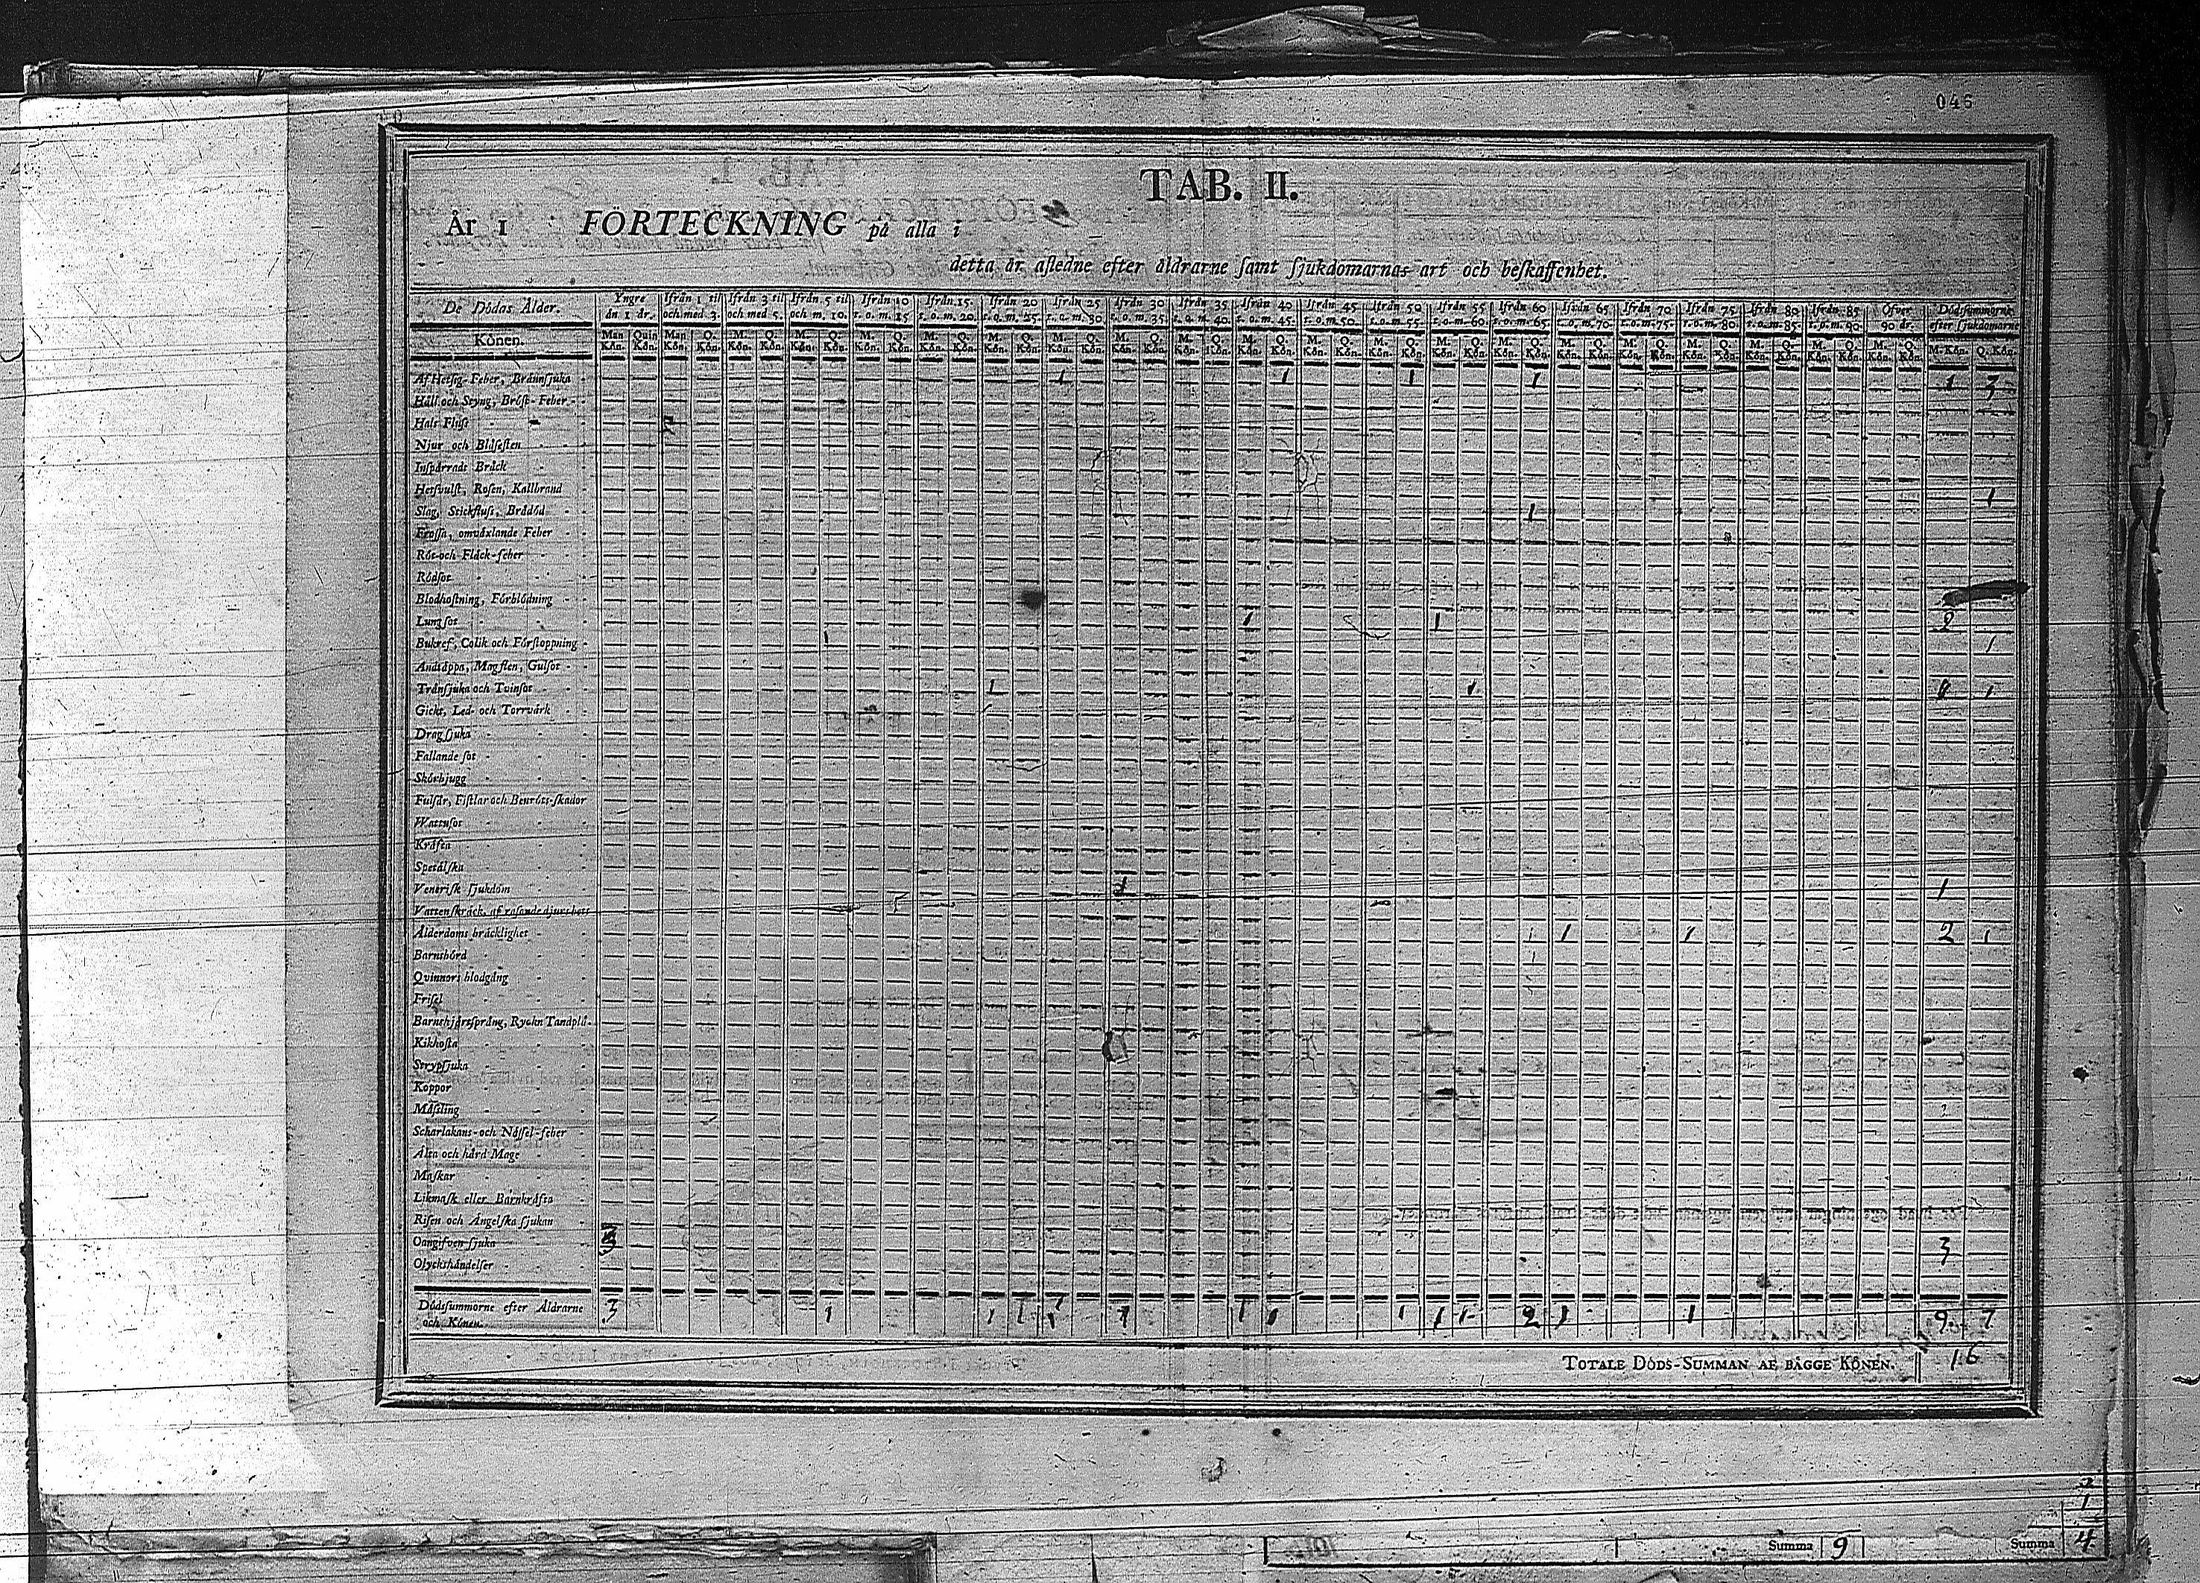 046
TAB. II.
År 1 FÖRTECKNING på alla i
detta år afledne efter åldrarne samt sjukdomarnas art och beskaffenhet.
De Dödas Ålder. Yngre än 1 år. Ifrån 1 til och med 3. Ifrån 3 til och med 5. Ifrån 5 til och m. 10. Ifrån 10 t. o. m. 15 Ifrån 15. t. o. m. 20. Ifrån 20 t. o. m. 25. Ifrån 25 t. o. m. 30 Ifrån 30 t. o. m. 35. Ifrån 35 t. o. m. 40. Ifrån 40 t. o. m. 45. Ifrån 45 t. o. m. 50. Ifrån 50 t. o. m. 55. Ifrån 55 t. o. m. 60. Ifrån 60 t. o. m. 65. Ifrån 65 t. o. m. 70. Ifrån 70 t. o. m. 75. Ifrån 75 t. o. m. 80 Ifrån 80 t. o. m. 85. Ifrån 85 t. o. m. 90. Öfver 90 år. Dödssummorne efter sjukdomarne
Könen. Man Kön. Quin Kön. Man Kön. Q. Kön. M. Kön. Q. Kön. M. Kön. Q. Kön. M. Kön. Q. Kön. M. Kön. Q. Kön. M. Kön. Q. Kön. M. Kön. Q. Kön. M. Kön. Q. Kön. M. Kön. Q. Kön. M. Kön. Q. Kön. M. Kön. Q. Kön. M. Kön. Q. Kön. M. Kön. Q. Kön. M. Kön. Q. Kön. M. Kön. Q. Kön. M. Kön. Q. Kön. M. Kön. Q. Kön. M. Kön. Q. Kön. M. Kön. Q. Kön. M. Kön. Q. Kön. M. Kön. Q. Kön.
Af Hetsig-Feber, Brännsjuka 1 1 1 1 1 3
Håll och Styng, Bröst-Feber
Hals Fluss
Njur och Blåsesten
Inspärradt Bråck
Hetsvulst, Rosen, Kallbrand
Slag, Stickfluss, Brådöd 1 1
Frossa, omväxlande Feber
Röt- och Fläck-feber
Rödsot
Blodhostning, Förblödning
Lungsot 1 1 2
Bukref, Colik och Förstoppning 1 1
Andtäppa, Magsten, Gulsot
Tränsjuka och Tvinsot 1 1 1
Gickt, Led- och Torrvärk
Dragsjuka
Fallande sot
Skörbjugg
Fulsår, Fistlar och Benröts-skador
Wattusot
Kräfta
Spetälska
Venerisk sjukdom 1 1
Vattenskräck, af rasande djurs bett
Ålderdoms bräcklighet 1 1 1 2 1
Barnsbörd
Qvinnors blodgång
Frisel
Barnshjärtsprång, Ryckn Tandplå-
Kikhosta
Strypsjuka
Koppor
Mässling
Scharlakans- och Nässel-feber
Älta och hård Mage
Maskar
Likmask eller Barnkräfta
Risen och Ängelska sjukan
Oangifven sjuka 3 3
Olyckshändelser
Dödssummorne efter Åldrarne 3 1 1 1 1 1 1 1 1 1 1 2 1 1 9 7
och Könen.
TOTALE DÖDS-SUMMAN AF BÄGGE KÖNEN. 16
2
1
Summa 9 Summa 4